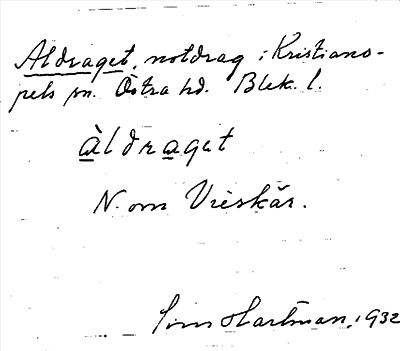 Aldraget, notdrag i Kristiano-
pels sn. Östra hd. Blek. l.
Àldraget
N. om Vieskär.
Hartman, 1932